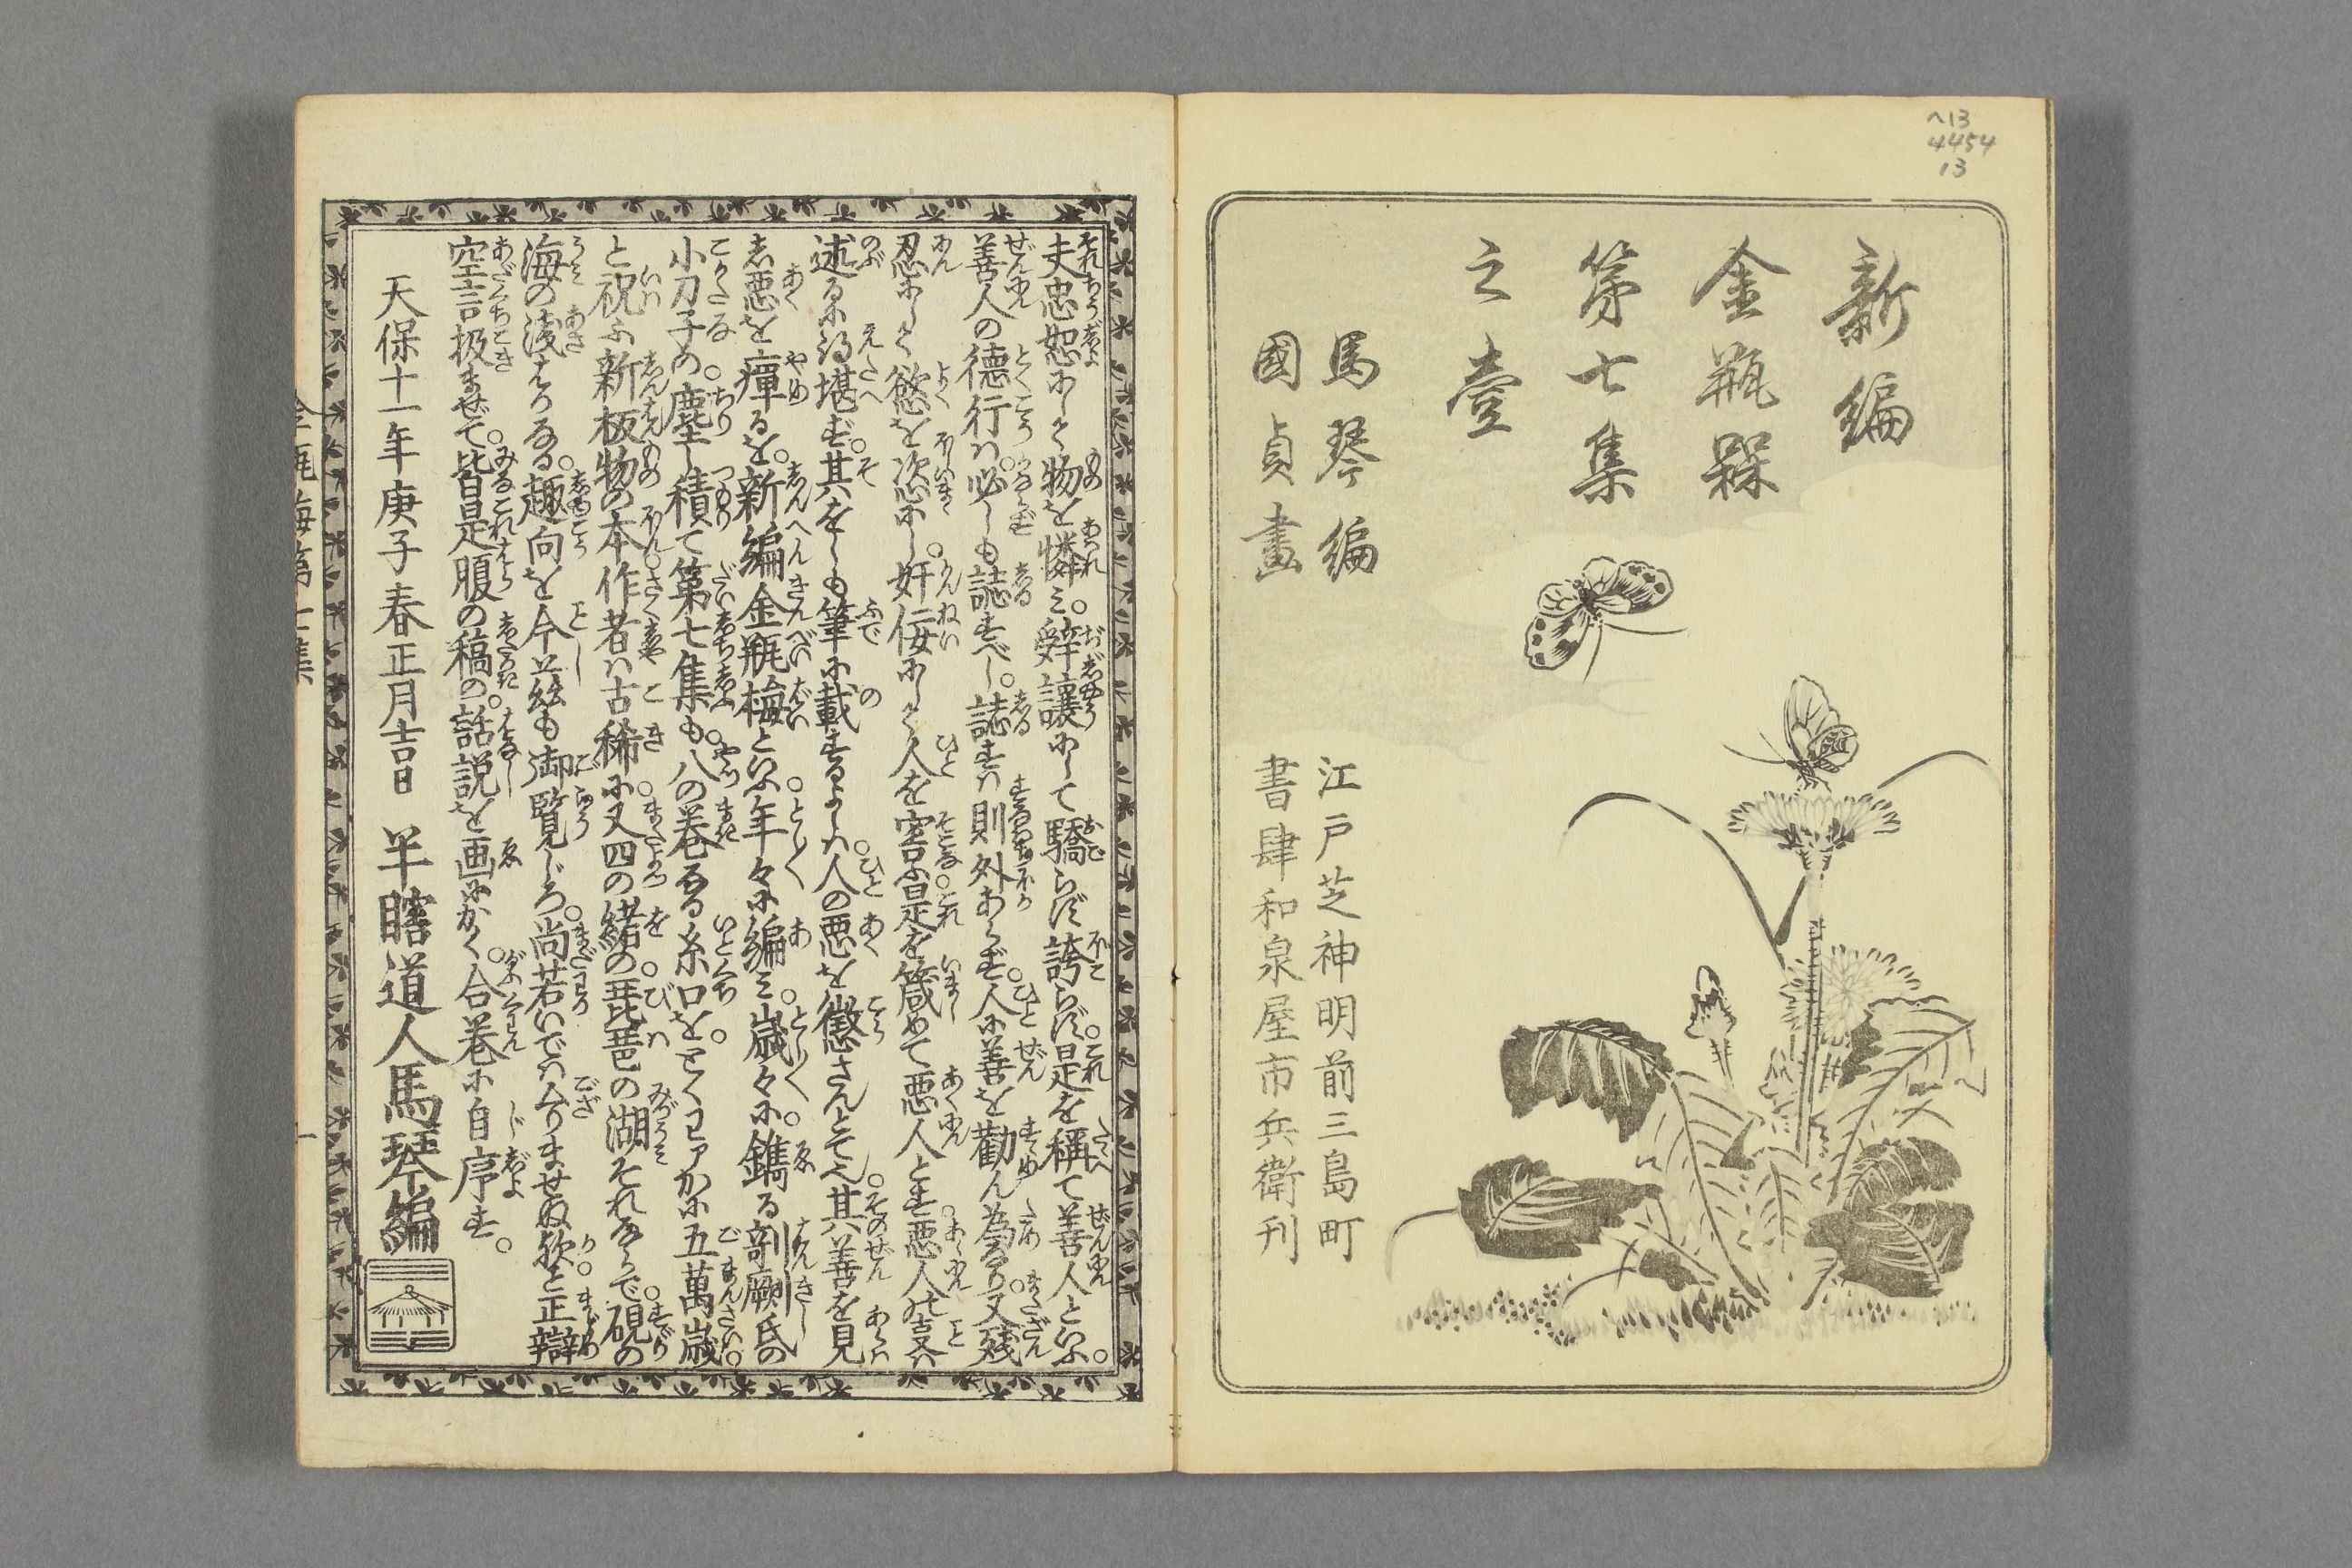 ヘ13
4454
13
新編
金瓶槑
第七集
之壹
馬琴編
國貞畫
江戸芝神明前三島町
書肆和泉屋市兵衛刊
夫忠恕にして物を憐ミ。辞讓にして驕らず誇らず。是を稱て善人といふ。
善人の德行ハ。必しも誌すべし。誌すハ則外あらず。人に善を勸ん為なり。又残
忍にして慾を恣にし。奸佞にして人を害ふ。是を箴めて悪人とす。悪人の㕝ハ
述るに得堪ず。其をしも筆に載するよしハ。人の悪を懲さんとて也。其善を見
し悪を癉るを。新編金瓶梅といふ。年々に編ミ。歳々に鐫る。剞劂氏の
小刀子の。塵積て第七集も。八の巻なる糸口を。とくわアかに五萬歳。
と祝ふ新板物の本。作者ハ古稀に。又四の緒の。琵琶の湖それならで。硯の
海の淺はかなる。趣向を今茲も御覧じろ。尚若いでハムりませぬ歟。と正辯
空言扱まぜで。皆是腹の稿の。話説を画にかく。合巻に自序す。
天保十一年庚子春正月吉日　羊瞎道人馬琴編
金瓶梅第七集
一